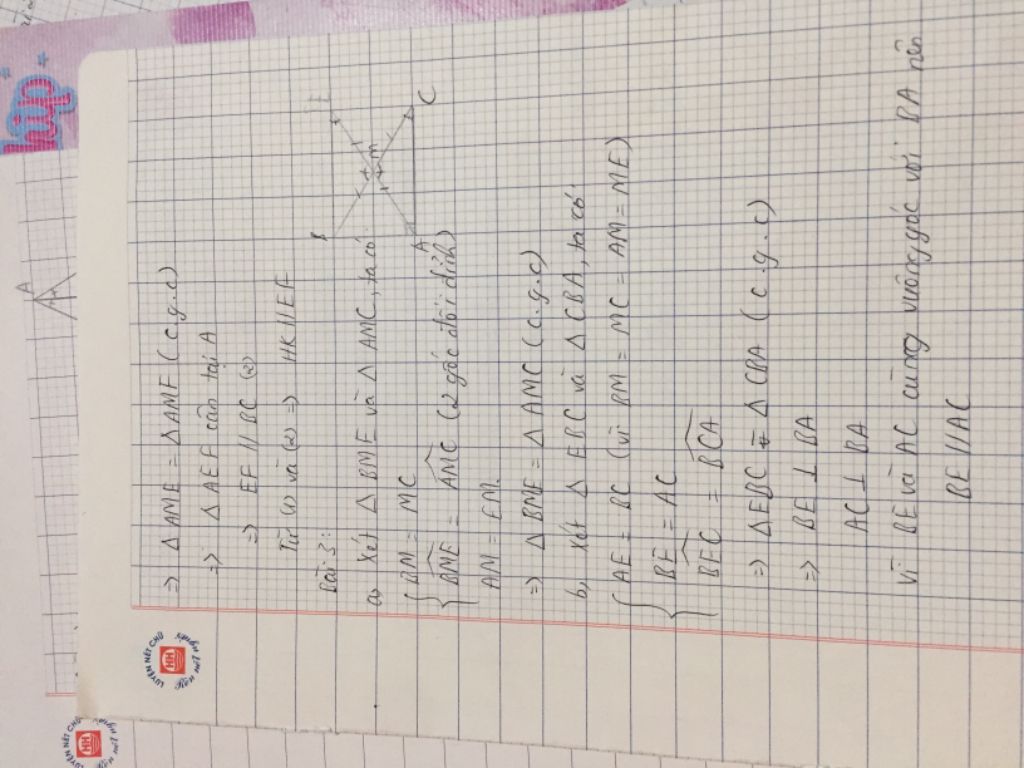 hiup
A
LUYỆN NÉT CHỮ
HH
=> Δ AME = Δ AMF ( c.g.c)
=> Δ AEF cân tại A
=> EF // BC (2)
Từ (1) và (2) => HK // EF
Bài 3:
B
M
A
C
a, Xét Δ BME và Δ AMC, ta có:
BM = MC
BME = AMC (2 góc đối đỉnh)
AM = EM
=> Δ BME = Δ AMC (c.g.c)
b, Xét Δ EBC và Δ CBA, ta có:
AE = BC (vì BM = MC = AM = ME)
BE = AC
BEC = BCA
=> ΔEBC = Δ CBA ( c.g.c)
=> BE ⊥ BA
AC ⊥ BA
Vì BE và AC cùng vuông góc với BA nên
BE // AC